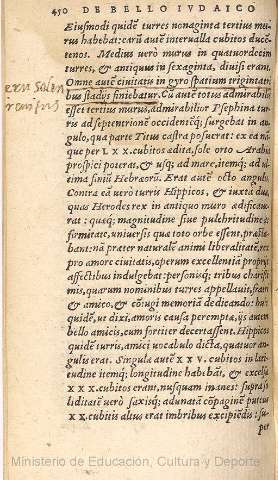 450 DE BELLO IVDAICO
Eiusmodi quidē turres nonaginta tertius mu-
rus habebat: earū autē interualla cubitos ducē-
tenos. Medius verò murus in quatuordecim
turres, & antiquus in sexaginta, diuisi erant.
Omne autē ciuitatis in gyro spatium triginta tri-
bus stadijs finiebatur. Cū autē totus admirabilis
esset tertius murus, admirabilior Psephina tur-
ris ad septentrionē occidentēq; surgebat in an-
gulo, qua parte Titus castra posuerat: ex ea nan-
que per LXX. cubitos ædita, sole orto Arabia
prospici poterat, & vsq; ad mare, itemq; ad vl-
tima finiū Hebræorū. Erat autē octo angulis.
Contra eā verò turris Hippicos, & iuxta duæ,
quas Herodes rex in antiquo muro ædificaue-
rat: quæq; magnitudine siue pulchritudine &
firmitate, vniuersis qua toto orbe essent, præsta-
bant: nā præter naturalē animi liberalitatē, &
pro amore ciuitatis, operum excellentiā proprijs
affectibus indulgebat: personisq; tribus charissi-
mis, quarum nominibus turres appellauit, fratri
& amico, & cōiugi memoriā dedicando: hunc
quidē, vt dixi, amoris causa perempta, ijs autem
bello amicis, cum fortiter decertassent. Hippicos
quidē turris, amici vocabulo dicta, quatuor an-
gulis erat. Singula autē XXV. cubitos in lati-
tudine itemq; longitudine habebāt, & excelsa
XXX. cubitis erant, nusquam inanes: supra so-
liditatē verò saxisq; adunatā cōpaginē puteus
XX. cubitis altus erat imbribus excipiēdis: su-
per
Ministerio de Educación, Cultura y Deporte